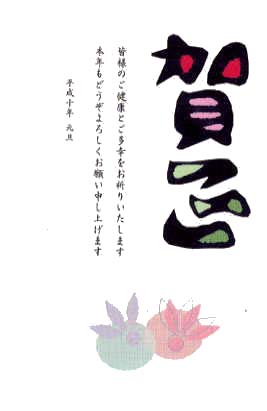 賀正
皆様のご健康とご多幸をお祈りいたします
本年もどうぞよろしくお願い申し上げます
平成十年 元旦